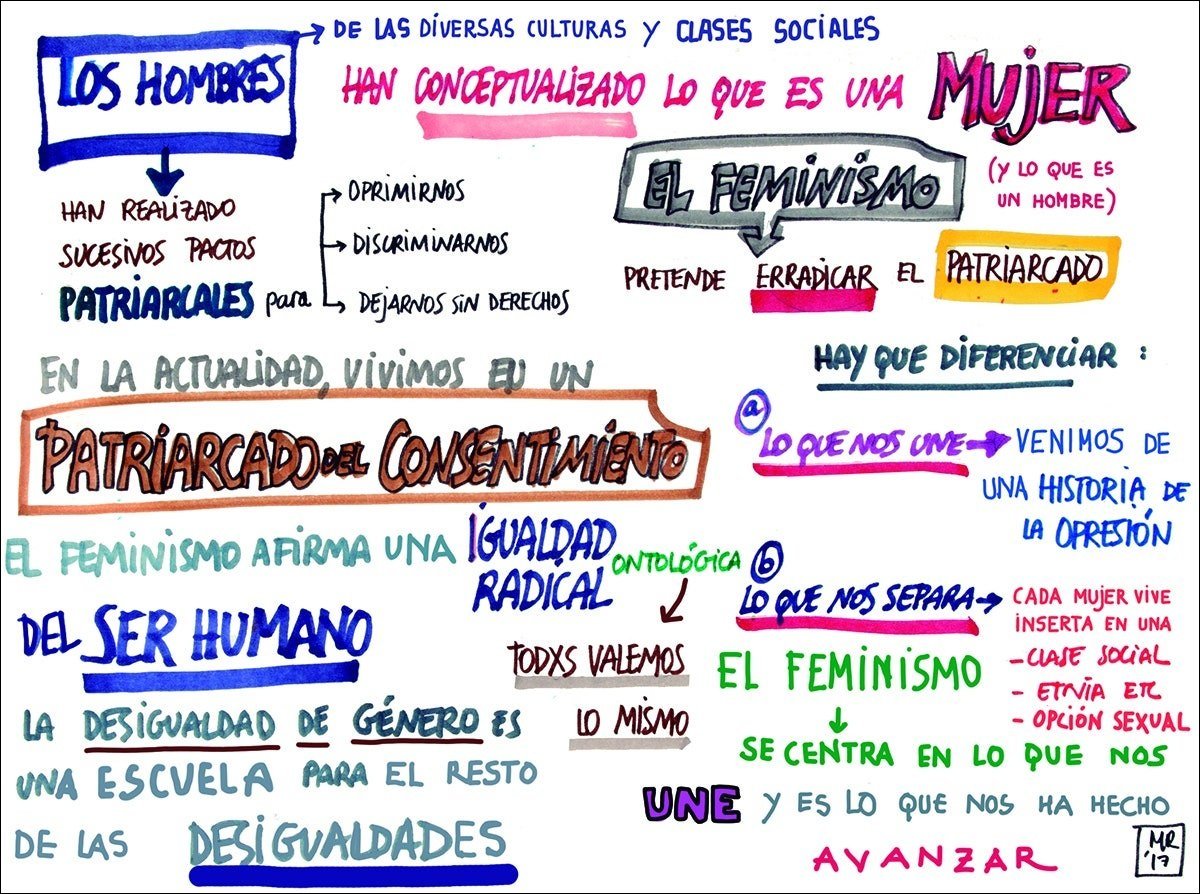 LOS HOMBRES
DE LAS DIVERSAS CULTURAS Y CLASES SOCIALES
HAN CONCEPTUALIZADO LO QUE ES UNA MUJER
(Y LO QUE ES
UN HOMBRE)
HAN REALIZADO
SUCESIVOS PACTOS
PATRIARCALES para
OPRIMIRNOS
DISCRIMINARNOS
DEJARNOS SIN DERECHOS
EL FEMINISMO
PRETENDE ERRADICAR EL PATRIARCADO
EN LA ACTUALIDAD, VIVIMOS EN UN
PATRIARCADO DEL CONSENTIMIENTO
EL FEMINISMO AFIRMA UNA IGUALDAD
RADICAL
ONTOLÓGICA
DEL SER HUMANO
TODXS VALEMOS
LO MISMO
LA DESIGUALDAD DE GÉNERO ES
UNA ESCUELA PARA EL RESTO
DE LAS DESIGUALDADES
HAY QUE DIFERENCIAR:
a
LO QUE NOS UNE
VENIMOS DE
UNA HISTORIA DE
LA OPRESIÓN
b
LO QUE NOS SEPARA
CADA MUJER VIVE
INSERTA EN UNA
- CLASE SOCIAL
- ETNIA ETC
- OPCIÓN SEXUAL
EL FEMINISMO
SE CENTRA EN LO QUE NOS
UNE Y ES LO QUE NOS HA HECHO
AVANZAR
MR
'17